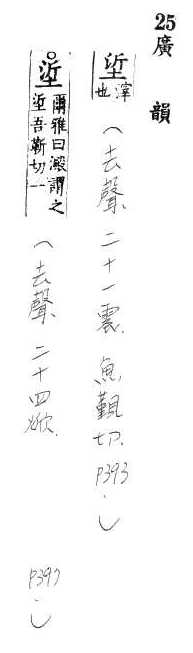 25 廣韻
垽 滓也 (去聲 二十一震. 魚覲切. P393.)
○垽 爾雅曰澱謂之垽吾靳切一 (去聲 二十四焮. P397.)